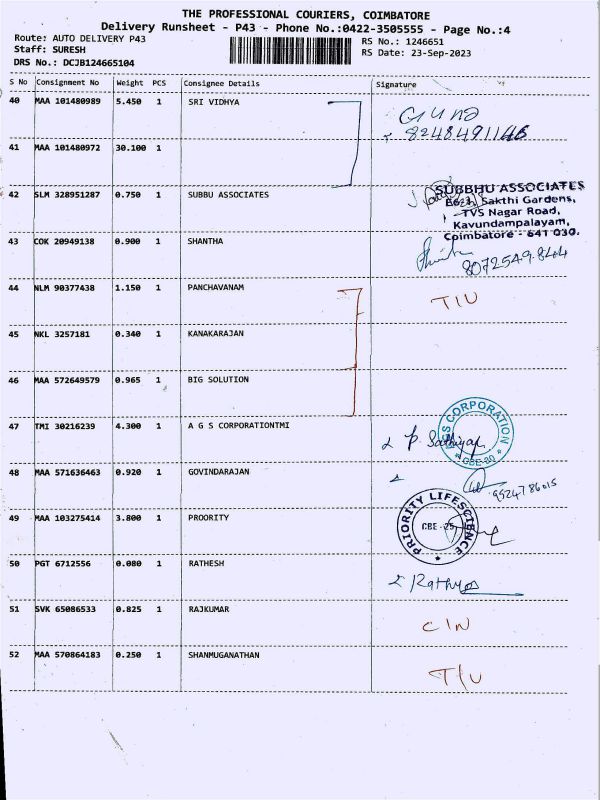 THE PROFESSIONAL COURIERS, COIMBATORE
Delivery Runsheet - P43 - Phone No.:0422-3505555 - Page No.:4
Route: AUTO DELIVERY P43
RS No.: 1246651
Staff: SURESH
RS Date: 23-Sep-2023
DRS No.: DCJB124665104
S No Consignment No Weight PCS Consignee Details Signature
40 MAA 101480989 5.450 1 SRI VIDHYA
Guna
8248491146
41 MAA 101480972 30.100 1
42 SLM 328951287 0.750 1 SUBBU ASSOCIATES
SUBBHU ASSOCIATES
Sakthi Gardens,
TVS Nagar Road,
Kavundampalayam,
Coimbatore - 641 030.
43 COK 20949138 0.900 1 SHANTHA
44 NLM 90377438 1.150 1 PANCHAVANAM T/U
45 NKL 3257181 0.340 1 KANAKARAJAN
46 MAA 572649579 0.965 1 BIG SOLUTION
47 TMI 30216239 4.300 1 A G S CORPORATIONTMI
AGS CORPORATION
48 MAA 571636463 0.920 1 GOVINDARAJAN
49 MAA 103275414 3.800 1 PROORITY
PRIORITY LIFESCIENCE
CBE - 25
50 PGT 6712556 0.080 1 RATHESH
51 SVK 65086533 0.825 1 RAJKUMAR C/N
52 MAA 570864183 0.250 1 SHANMUGANATHAN T/U